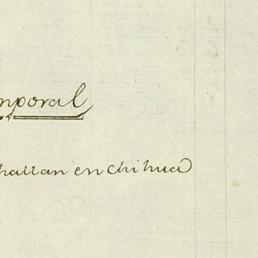 nporal
hallan en Chihua